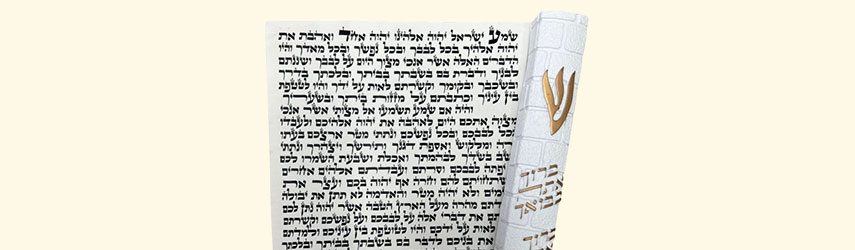 שמע ישראל יהוה אלהינו יהוה אחד ואהבת את
יהוה אלהיך בכל לבבך ובכל נפשך ובכל מאדך והיו
הדברים האלה אשר אנכי מצוך היום על לבבך ושננתם
לבניך ודברת בם בשבתך בביתך ובלכתך בדרך
ובשכבך ובקומך וקשרתם לאות על ידך והיו לטטפת
בין עיניך וכתבתם על מזזות ביתך ובשעריך
והיה אם שמע תשמעו אל מצותי אשר אנכי
מצוה אתכם היום לאהבה את יהוה אלהיכם ולעבדו
בכל לבבכם ובכל נפשכם ונתתי מטר ארצכם בעתו
רה ומלקוש ואספת דגנך ותירשך ויצהרך ונתתי
שב בשדך לבהמתך ואכלת ושבעת השמרו לכם
פתה לבבכם וסרתם ועבדתם אלהים אחרים
שתחויתם להם וחרה אף יהוה בכם ועצר את
מים ולא יהיה מטר והאדמה לא תתן את יבולה
דתם מהרה מעל הארץ הטבה אשר יהוה נתן לכם
תם את דברי אלה על לבבכם ועל נפשכם וקשרתם
לאות על ידכם והיו לטוטפת בין עיניכם ולמדתם
את בניכם לדבר בם בשבתך בביתך ובלכתך
ש